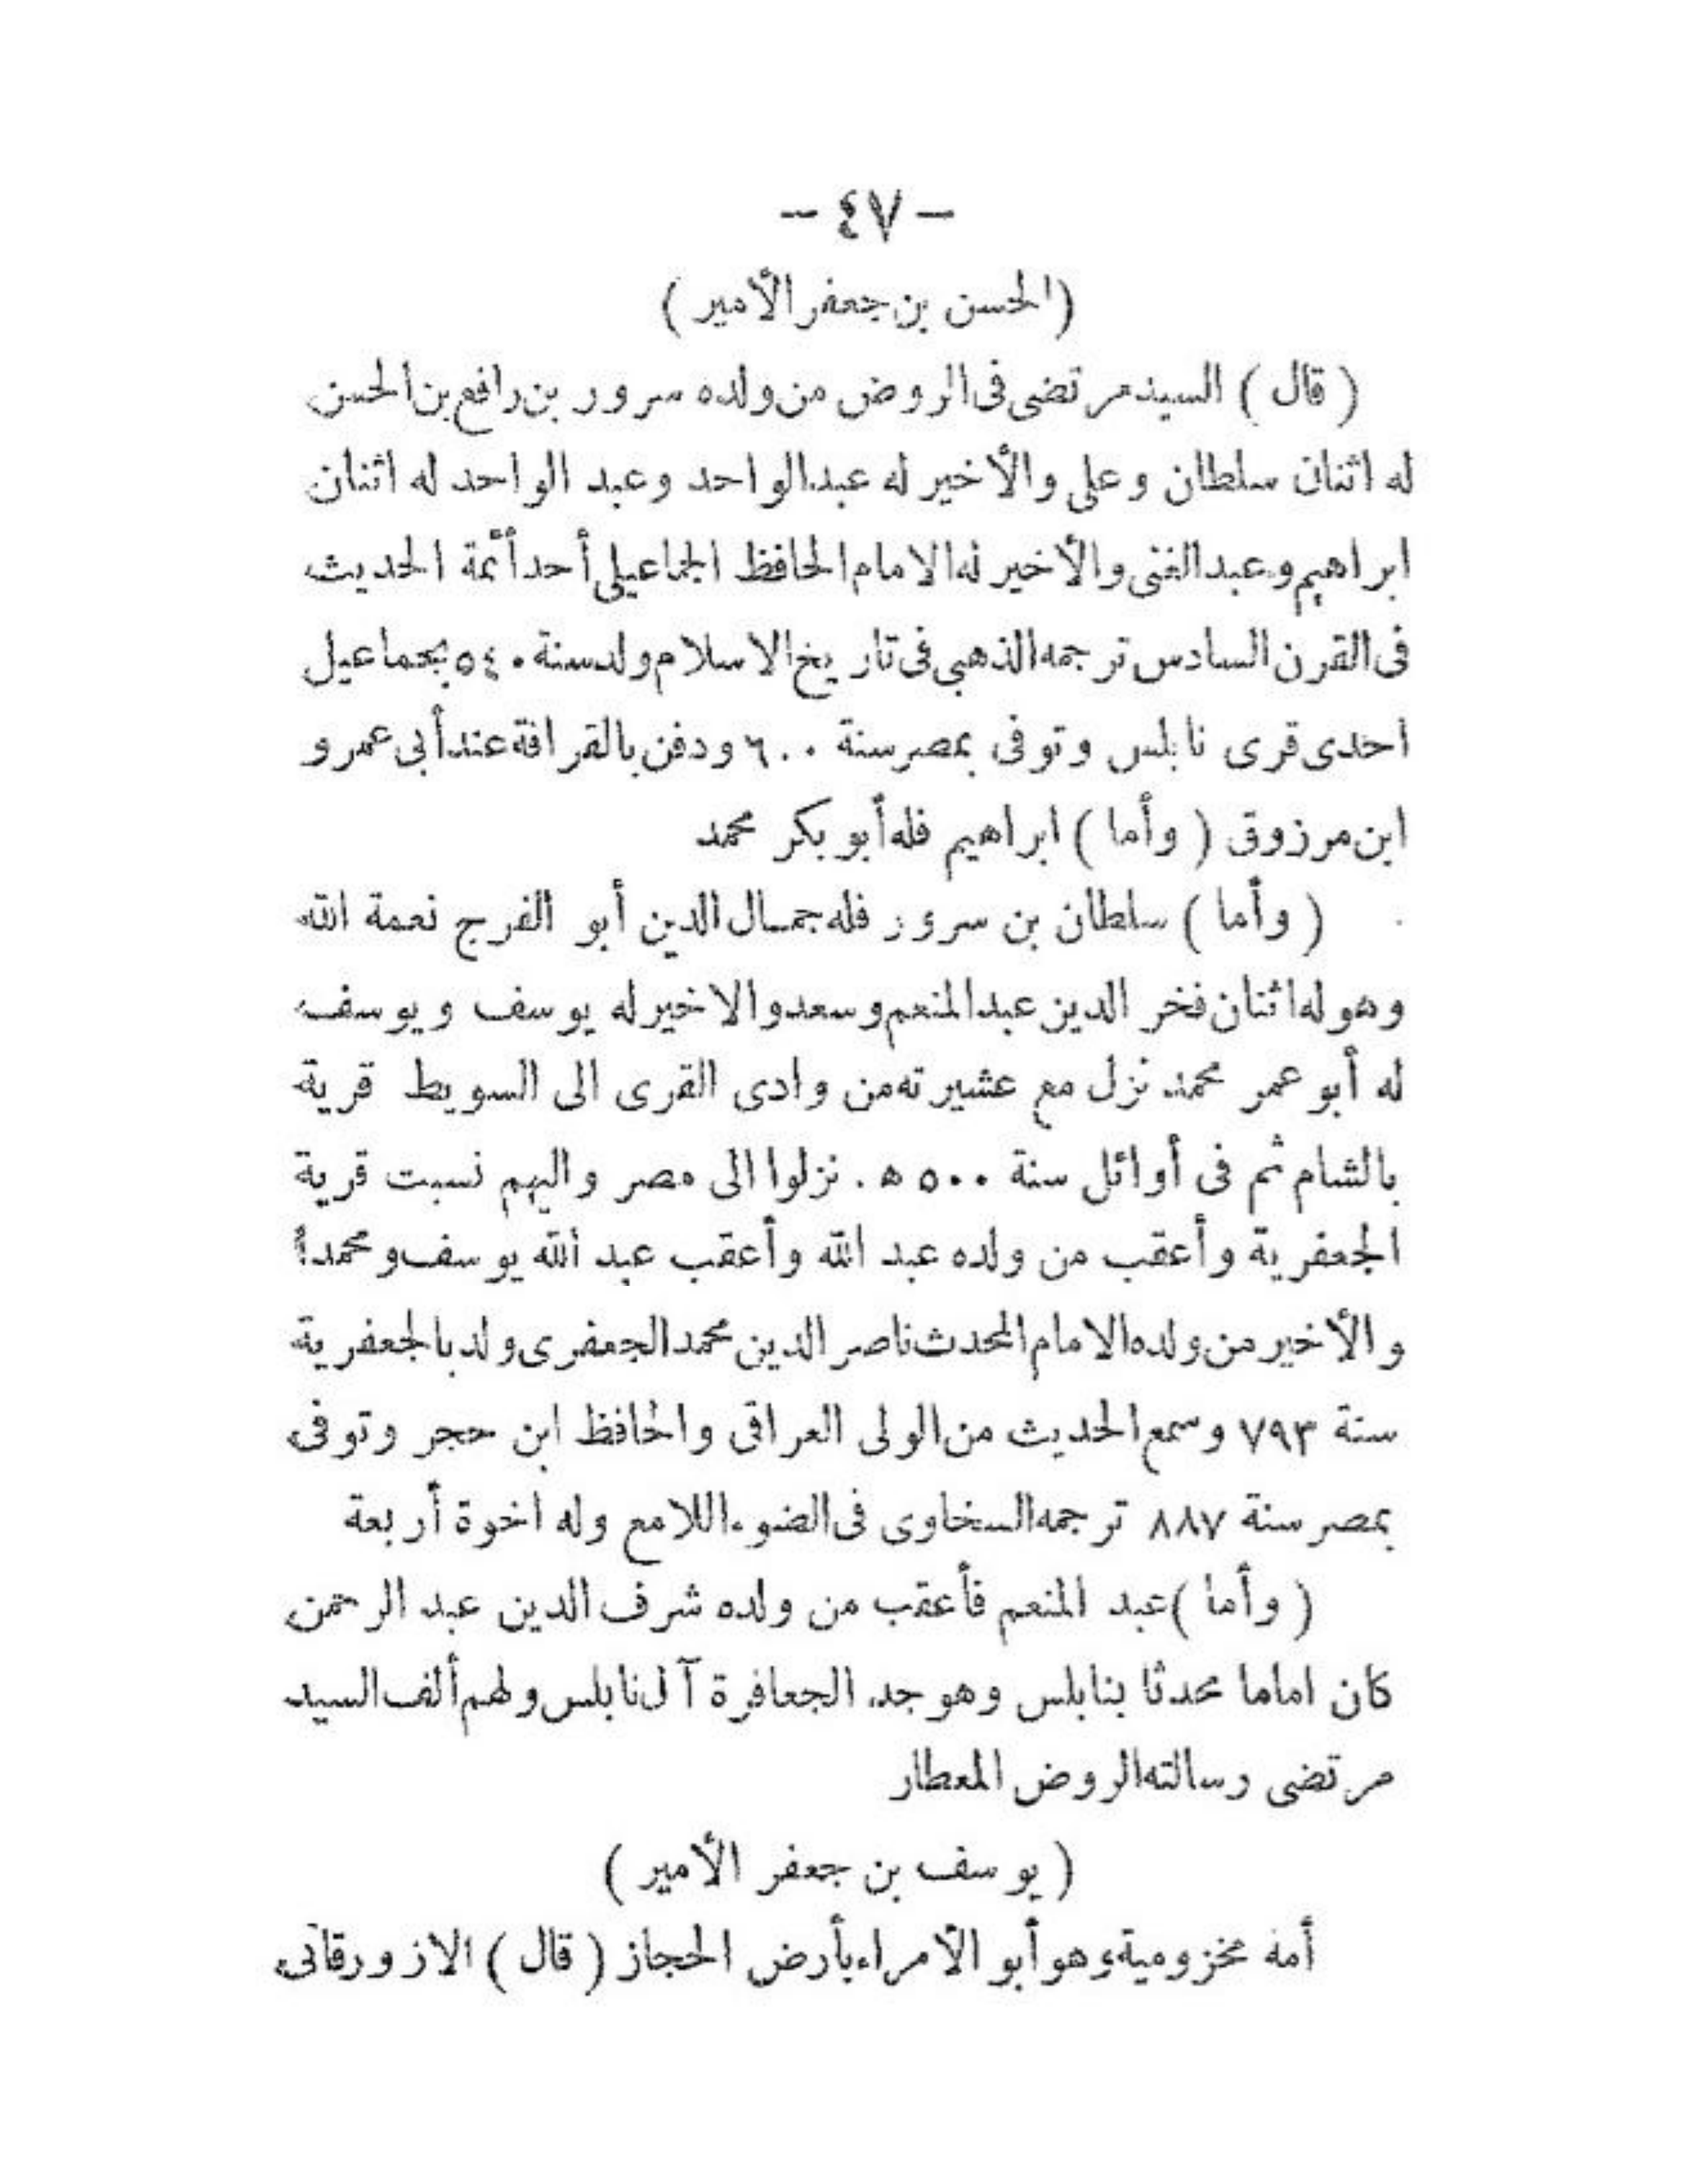 - ٤٧ -
( الحسن بن جعفر الأمير )
( قال ) السيد مرتضى فى الروض من ولده سرور بن رافع بن الحسن
له اثنان سلطان وعلى والأخير له عبد الواحد وعبد الواحد له اثنان
ابراهيم وعبد الغنى والأخير له الامام الحافظ الجماعيلى أحد أئمة الحديث
فى القرن السادس ترجمه الذهبى فى تاريخ الاسلام ولد سنة ٥٤٠ بجماعيل
احدى قرى نابلس وتوفى بمصر سنة ٦٠٠ ودفن بالقرافة عند أبى عمرو
ابن مرزوق ( وأما ) ابراهيم فله أبو بكر محمد
( وأما ) سلطان بن سرور فله جمال الدين أبو الفرج نعمة الله
وهو له اثنان فخر الدين عبد المنعم وسعد والاخير له يوسف ويوسف
له أبو عمر محمد نزل مع عشيرته من وادى القرى الى السويط قرية
بالشام ثم فى أوائل سنة ٥٠٠ ه . نزلوا الى مصر واليهم نسبت قرية
الجعفرية وأعقب من ولده عبد الله وأعقب عبد الله يوسف ومحمداً
والأخير من ولده الامام المحدث ناصر الدين محمد الجعفرى ولد بالجعفرية
سنة ٧٩٣ وسمع الحديث من الولى العراقى والحافظ ابن حجر وتوفى
بمصر سنة ٨٨٧ ترجمه السخاوى فى الضوء اللامع وله اخوة أربعة
( وأما ) عبد المنعم فأعقب من ولده شرف الدين عبد الرحمن
كان اماما محدثا بنابلس وهو جد الجعافرة آل نابلس ولهم ألف السيد
مرتضى رسالته الروض المعطار
( يوسف بن جعفر الأمير )
أمه مخزومية وهو أبو الأمراء بأرض الحجاز ( قال ) الازورقانى